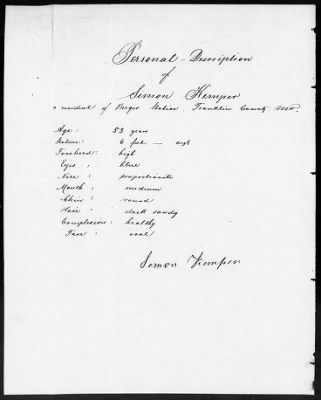 Personal - Description
of
Simon Kemper
a resident of Berger Station, Franklin County Mo.
Age : 53 years
Stature : 6 feet — high
Forehead : high
Eyes : blue
Nose : proportionate
Mouth : medium
Chin : round
Hair : dark sandy
Complexion : healthy
Face : oval
Simon Kemper